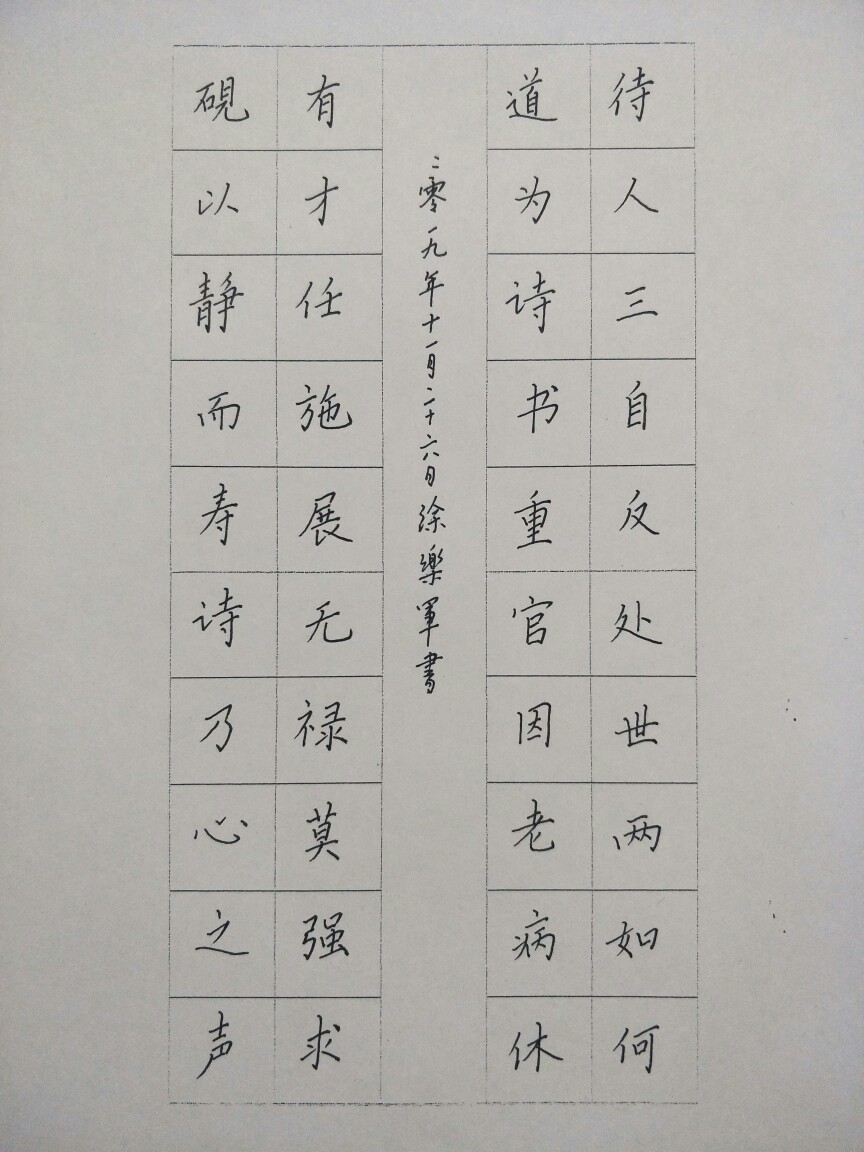 待人三自反处世两如何
道为诗书重官因老病休
二零一九年十一月二十六日徐樂軍書
有才任施展无禄莫强求
砚以静而寿诗乃心之声